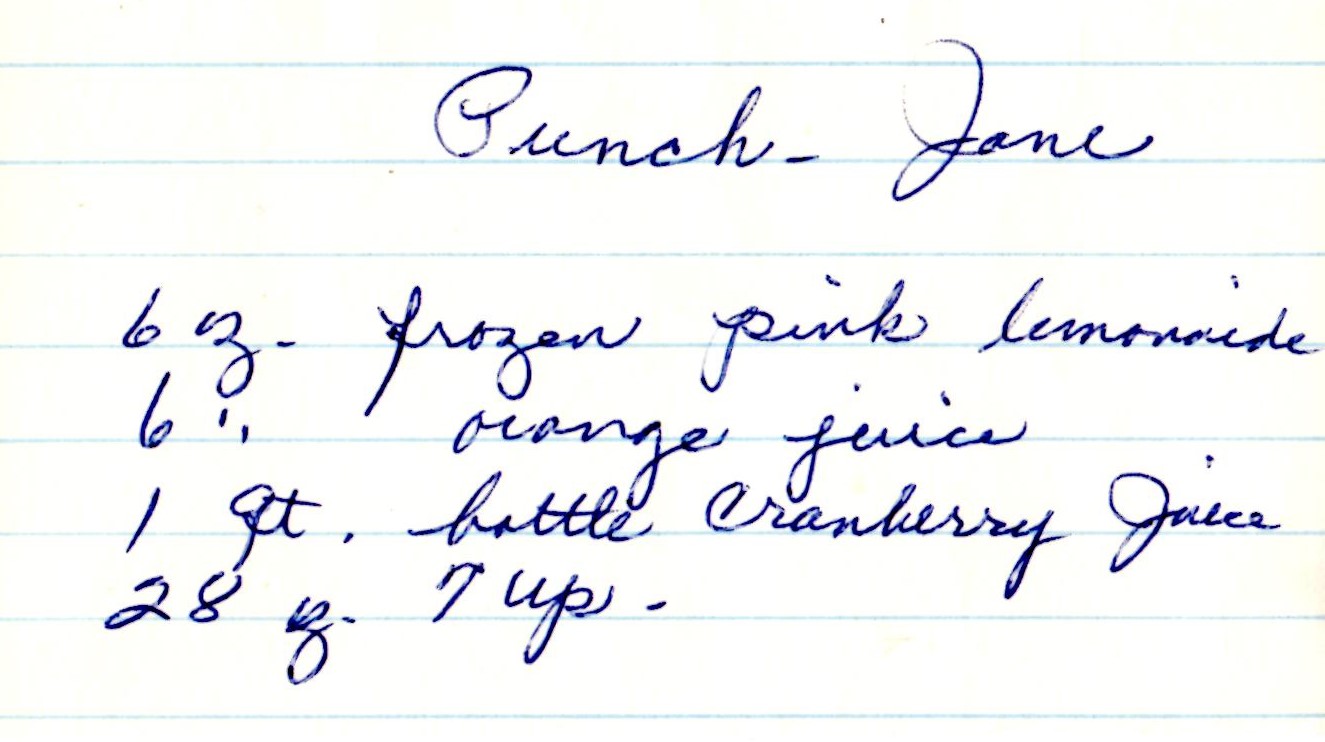 Punch - Jane
6 oz. frozen pink lemonaide
6 " orange juice
1 qt. bottle Cranberry Juice
28 oz. 7 up.